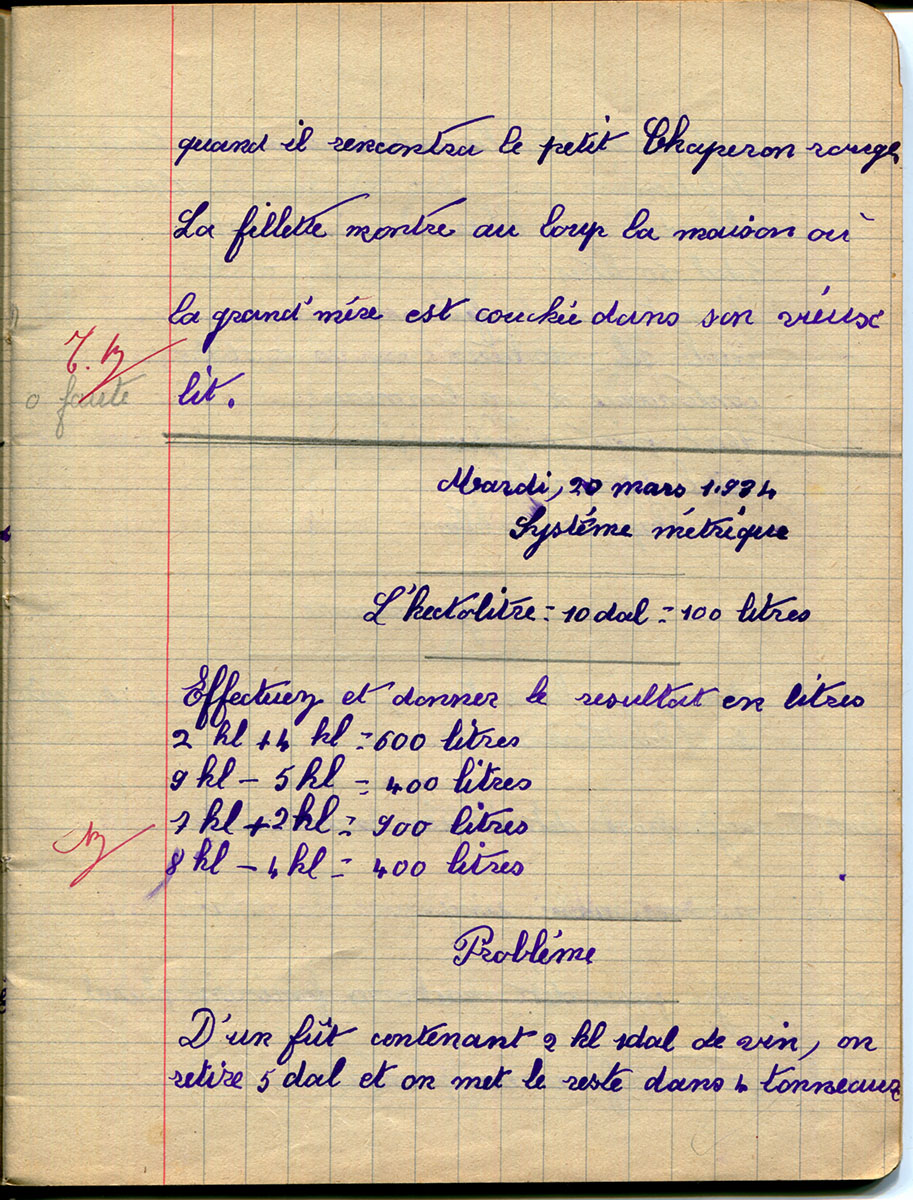 quand il rencontra le petit Chaperon rouge
La fillette montre au loup la maison où
la grand'mère est couchée dans son vieux
T. B
0 faute
lit.
Mardi, 20 mars 1.934
Système métrique
L'hectolitre = 10 dal = 100 litres
Effectuez et donner le resultat en litres
2 hl + 4 hl = 600 litres
9 hl - 5 hl = 400 litres
7 hl + 2 hl = 900 litres
B
8 hl - 4 hl = 400 litres
Problème
D'un fût contenant 2 hl 1dal de vin, on
retire 5 dal et on met le reste dans 4 tonneaux